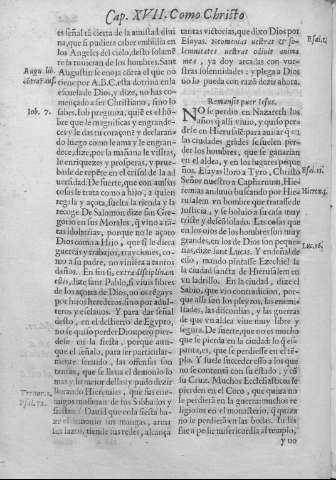 Cap. XVII. Como Christo
es señal tã cierta de la amistad divi
na, que si pudiera caber embidia en
los Angeles del cielo, desto solamẽ
te la tuuieran de los hombres. Sant
Augu. lib.
Augustin se enoja cõtra el que no
tiene por A.B.C. esta dotrina en la
escuela de Dios, y dize, no has co-
mençado a ser Christiano, sino lo
Iob. 7.
sabes. Iob pregunta, que es el hõ-
bre que le magnificas y engrande-
ces, y le das tu coraçon? y declaran-
do luego como le ama y le engran-
dece, dize, por la mañana le visitas,
le enriqueces y prosperas, y
de repẽte en el crisol de la ad
uersidad. De suerte, que con ambas
cosas le trata como a hijo, a quien
regala y açota, suelta la rienda y la
recoge. De Salomon dize San Gre-
gorio en sus Morales, que vino a tã-
tas idolatrias, porque no le açoto
Dios como a Hijo, que si le diera
guerras y trabajos, trayciones, co-
mo a su padre, no viniera a tantos
daños. En fin si, extra disciplinam
estis, dize sant Pablo, si viuis libres
de los açotes de Dios, no os tẽgays
por hijos herederos, sino por adul-
teros y esclauos. Y para dar señal
desto, en el destierro de Egypto,
no se quiso perder Dios, pero pier-
dese en la fiesta, porque aun-
que el señalo, para ser particular-
mente honrado, las ofensas
tantas, que se lleua el demonio lo
mas y lo menor della: y pudo dezir
Trenor. 1.
llorando Hieremias, que sus ene-
migos mofauan de sus Sabbados y
Psal. 72.
fiestas. Dauid que cola fiesta ha-
ze el demonio sus mangas, arma
sus lazos, tiende sus redes, alcança
tantas victorias, que dixo Dios por
Esai. 1.
Esayas. Neomenias vestras & so-
lemnitates vestras odiuit anima
mea, ya doy arcadas con vues-
tras solennidades: y plega a Dios
no lo pueda con razõ dezir ahora.
Remansit puer Iesus.
NO se perdio en Nazareth los
años q̃ alli viuio, y quiso per-
derse en Hierusalẽ: para auisar q̃ en
las ciudades grãdes suelen perder
se los hombres, que se ganarian
en el aldea, y en los lugares peque
Esai. 23.
ños. Esayas lloro a Tyro, Christo
Señor nuestro a Capharnaum, Hie-
Hierem. 5.
remias anduuo buscando por Hieru
salem vn hombre que tratasse de
justicia, y se boluio a su casa muy
triste y desconsolado. Las cosas que
en los ojos de los hombres son muy
grandes, en los de Dios son peque-
Luc. 16.
ñas, dize sant Lucas. Y en señal de
esto, mando pintasse Ezechiel la
ciudad sancta de Hierusalem en
vn ladrillo. En la ciudad, dize el
Sabio, que vio contradicion, por-
que alli son los pleytos, las enemis-
tades, las discordias, y las guerras
de que en aldea viue muy libre y
segura. De suerte, que no es mucho
que se pierda en la ciudad lo q̃ es-
panta es, que se perdiesse en el tẽ-
plo. Y suele suceder esto a los que
no se contenta con su estado, y cõ
su Cruz. Muchos Ecclesiasticos se
pierden en el Coro, que quiza no
le perderã en la guerra: muchos re
ligiosos en el monasterio, q̃ quiza
no se perderã en las bodas. Iudas
fue a pedir misericordia al templo,
y no